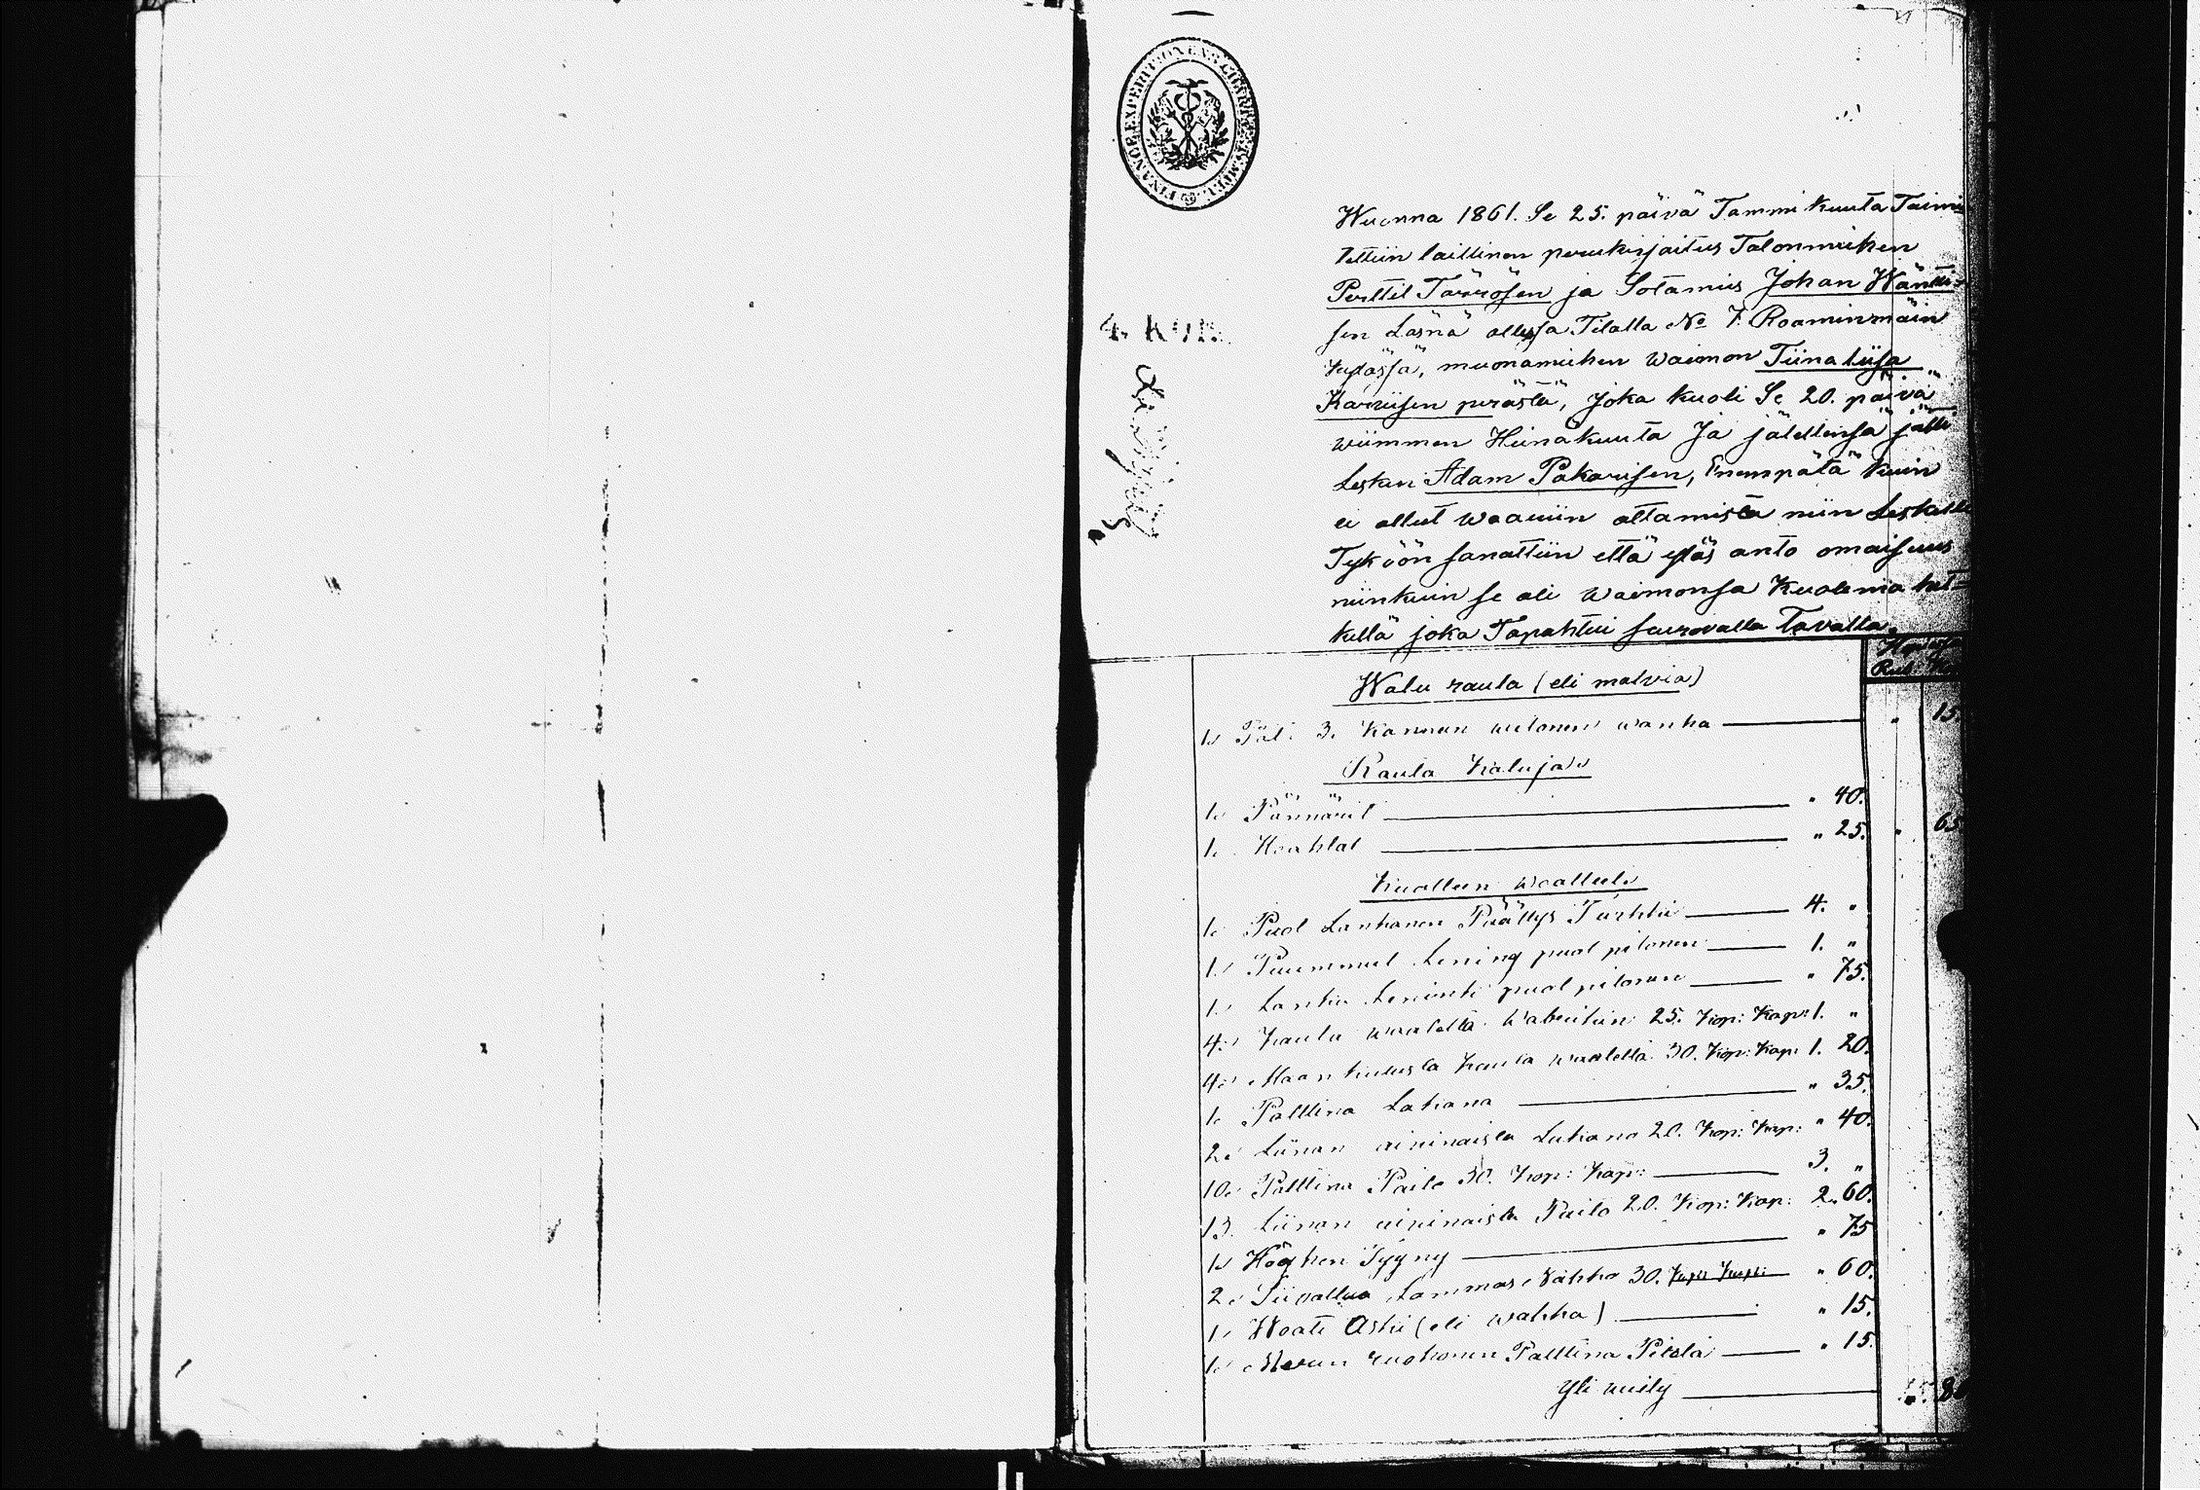 FINANCE EXPEDITIONENS CHARTÆ
Wuonna 1861. Se 25. päivä Tammi kuuta Toimi
tettiin laillinen perukirjoitus Talonmiehen
Perttil Törrösen ja Sotamies Johan Wäntti-
sen Läsnä ollessa Tilalla No 7. Roaminmäin
kyläsjä, muonamiehen Waimon Tiina Liisa
Karvisen perästä, joka kuoli Se 20. päivä
wiimmen Heinäkuuta Ja jälellensä jätti
Lesken Adam Pakarisen, Enempätä kuin
ei ollut waariin ottamista niin Leskelle
Tyköön sanottiin että ylös anto omaisuus
niinkuin se oli waimonsa Kuolema het-
kellä joka Tapahtui seuravalla Tavalla.
4. KOP.
Rub: Kop
Walu rauta (eli malvia)
1. Pata 3. Kannun vetonen wanha 15
Rauta Kaluja
1. Pännärit " 40.
1. Keahlat " 25. " 65
Kuolleen Waatteet
1. Puol Lankanen Päällys Turkki 4. "
1. Puummul Lening puol pitonen 1. "
1. Lanka Leninki puol pitonen " 75.
4. kaula waatetta 25. Kop: Kap: 1. "
4. Maan kutusta kaula waatetta 30. Kop: Kap: 1. 20.
1. Palttina Lakana " 35.
2. Liinan aininaista Lakana 20. Kop: Kap: " 40.
10. Palttina Paito 30. Kop: Kap: 3. "
13. Liinan aininaista Paito 20. Kop: Kap: 2. 60.
1. Höyhen Tyyny " 75
2. Siivottua Lammas Nahka 30. " 60.
1. Woate Aski (eli wakka) " 15.
1. Meren ruohonen Palttina Petstä " 15.
Yli wiety